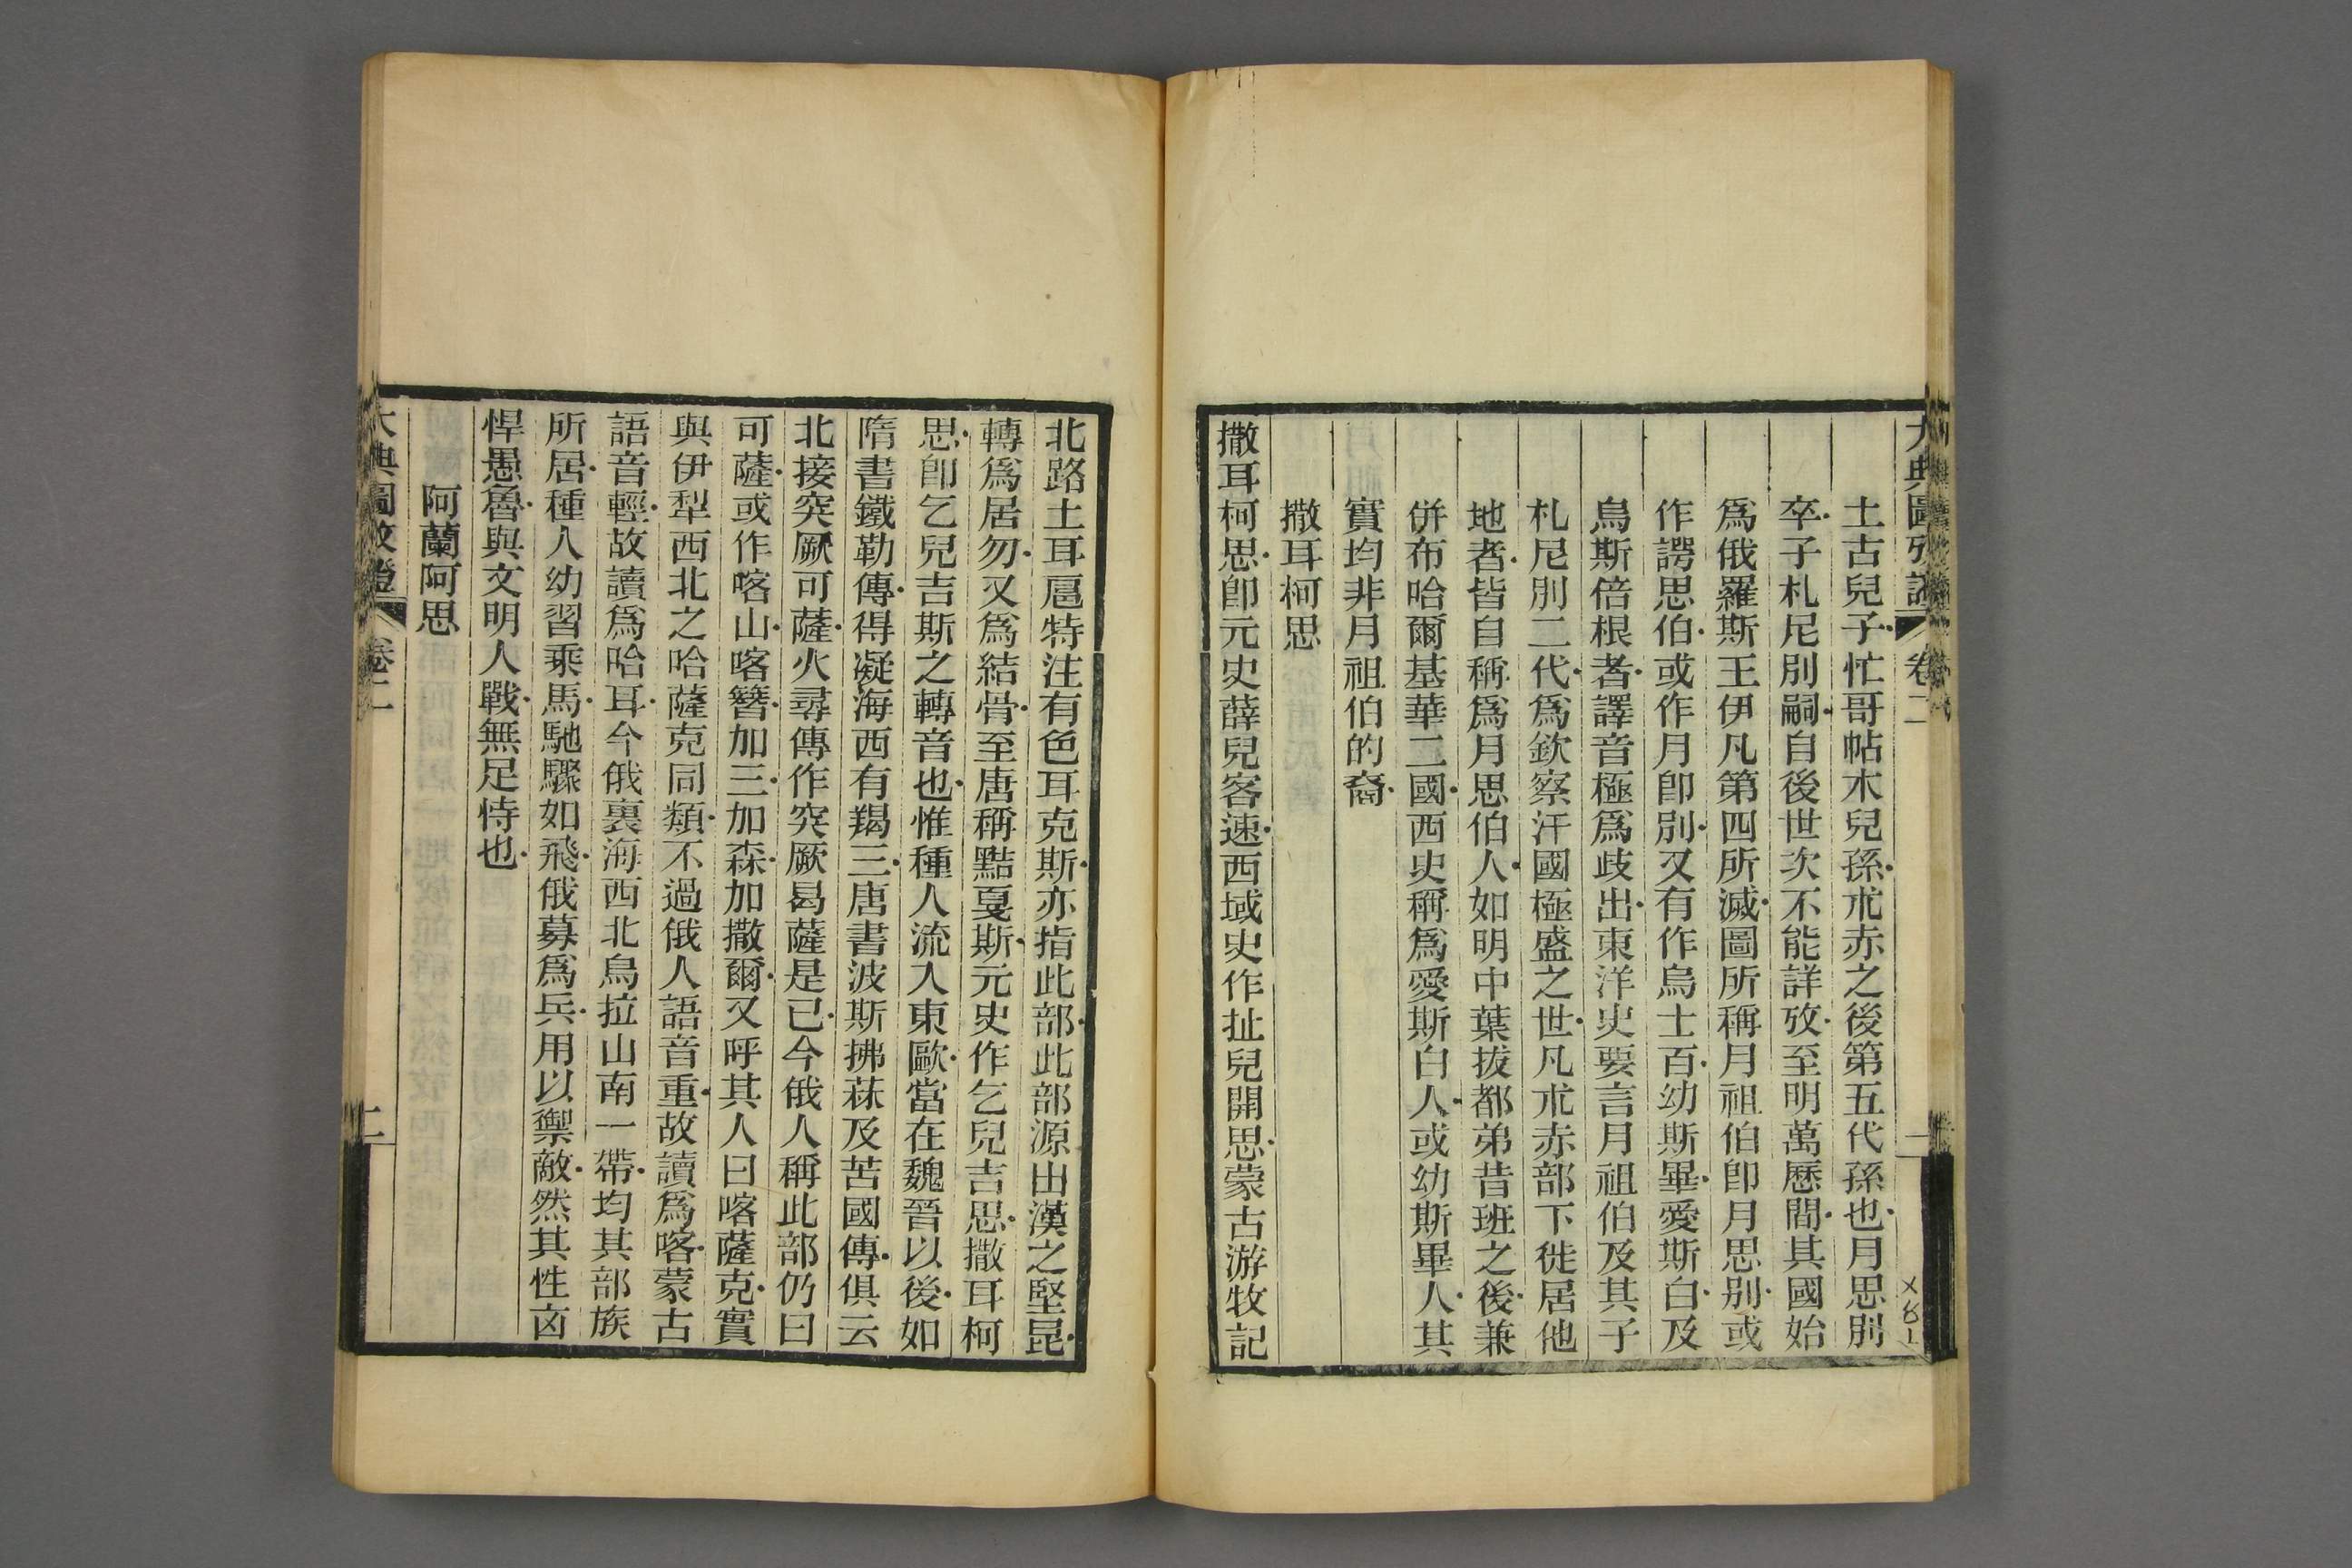 大典圖攷證 卷二 二
土古兒子忙哥帖木兒孫朮赤之後第五代孫也月思別
卒子札尼別嗣自後世次不能詳攷至明萬歷間其國始
爲俄羅斯王伊凡第四所滅圖所稱月祖伯卽月思別或
作諤思伯或作月卽別又有作烏士百幼斯畢愛斯白及
烏斯倍根者譯音極爲歧出東洋史要言月祖伯及其子
札尼別二代爲欽察汗國極盛之世凡朮赤部下徙居他
地者皆自稱爲月思伯人如明中葉拔都弟昔班之後兼
併布哈爾基華二國西史稱爲愛斯白人或幼斯畢人其
實均非月祖伯的裔
撒耳柯思
撒耳柯思卽元史薛兒客速西域史作扯兒開思蒙古游牧記
北路土耳扈特注有色耳克斯亦指此部此部源出漢之堅昆
轉爲居勿又爲結骨至唐稱黠戛斯元史作乞兒吉思撒耳柯
思卽乞兒吉斯之轉音也惟種人流入東歐當在魏晉以後如
隋書鐵勒傳得凝海西有羯三唐書波斯拂菻及苦國傳俱云
北接突厥可薩火尋傳作突厥曷薩是已今俄人稱此部仍曰
可薩或作喀山喀簪加三加森加撒爾又呼其人曰喀薩克實
與伊犁西北之哈薩克同類不過俄人語音重故讀爲喀蒙古
語音輕故讀爲哈耳今俄裏海西北烏拉山南一帶均其部族
所居種人幼習乘馬馳驟如飛俄募爲兵用以禦敵然其性㐫
悍愚魯與文明人戰無足恃也
阿蘭阿思
大典圖攷證 卷二 二